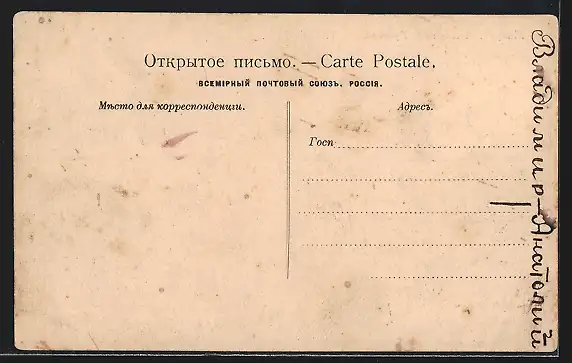 Открытое письмо. — Carte Postale.
ВСЕМІРНЫЙ ПОЧТОВЫЙ СОЮЗЪ. РОССІЯ.
Мѣсто для корреспонденціи.
Адресъ.
Госп
Владимир-Анатолий